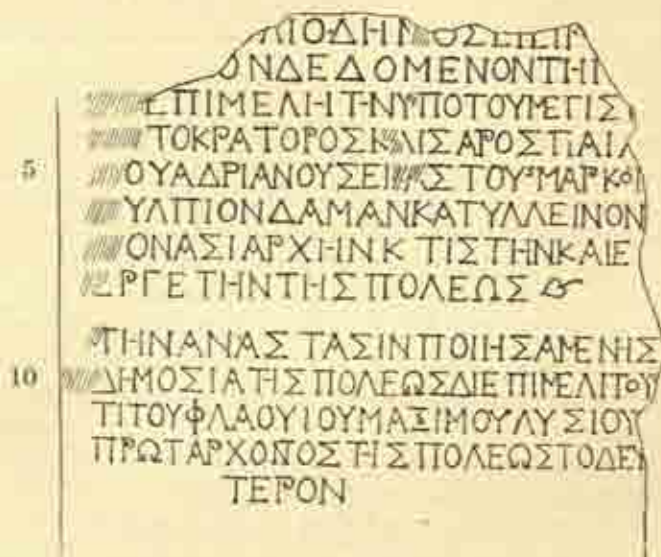 ΟΝΔΕΔΟΜΕΝΟΝΤΗΙ
ΕΠΙΜΕΛΗΤΗΝΥΠΟΤΟΥΜΕΓΙΣ
ΤΟΚΡΑΤΟΡΟΣΚ ΙΣΑΡΟΣΤΙΑΙΛ
5 ΟΥΑΔΡΙΑΝΟΥΣΕΙ ΣΤΟΥ ΜΑΡΚΟ
ΥΛΠΙΟΝΔΑΜΑΝΚΑΤΥΛΛΕΙΝΟΝ
ΟΝΑΣΙΑΡΧΗΝΚΤΙΣΤΗΝΚΑΙΕ
ΕΡΓΕΤΗΝΤΗΣΠΟΛΕΩΣ
ΤΗΝΑΝΑΣΤΑΣΙΝΠΟΙΗΣΑΜΕΝΗΣ
10 ΔΗΜΟΣΙΑΤΗΣΠΟΛΕΩΣΔΙΕΠΙΜΕΛΗΤΟΥ
ΤΙΤΟΥΦΛΑΟΥΙΟΥΜΑΞΙΜΟΥΛΥΣΙΟΥ
ΠΡΩΤΑΡΧΟΝΤΟΣΤΗΣΠΟΛΕΩΣΤΟΔΕΥ
ΤΕΡΟΝ